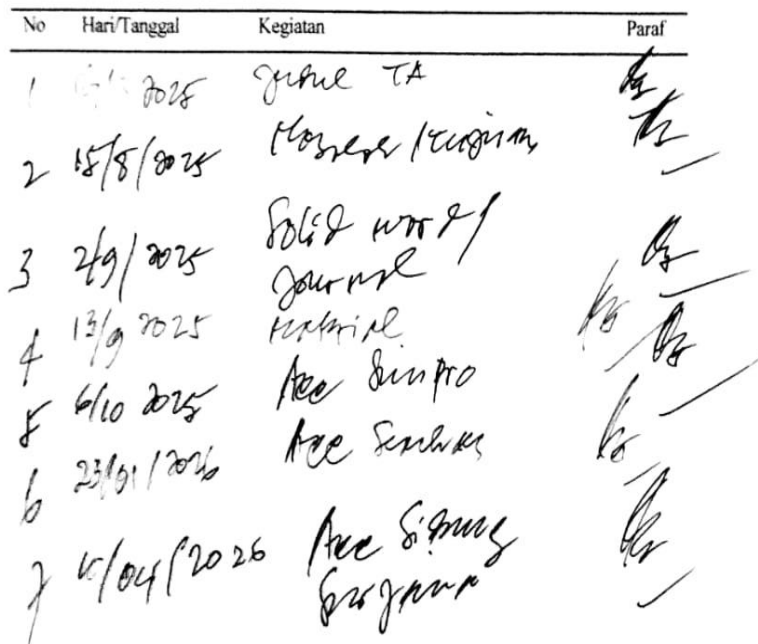 No Hari/Tanggal Kegiatan Paraf
1 2025 Judul TA
2 15/8/2025
3 2/9/2025 Solid work/
Journal
4 13/9 2025 Material
5 6/10 2025 Acc Sempro
6 23/01/2026 Acc Semhas
7 /04/2026 Acc Sidang
Sarjana